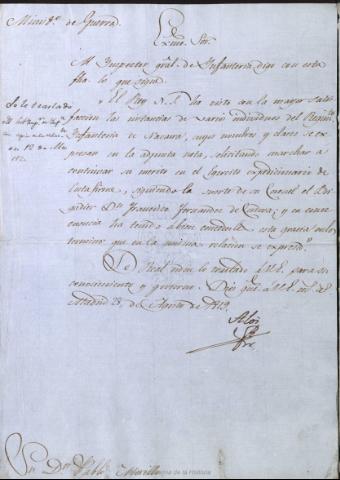 Minist.º de Guerra.
Exmo. Sor.
Al Inspector gral. de Infanteria digo con esta
fha. lo que sigue.
El Rey N. S. ha visto con la mayor satis
faccion las instancias de varios individuos del Regim.to
Infanteria de Navarra, cuyos nombres y clases se ex
presan en la adjunta nota, solicitando marchar á
continuar su merito en el Exercito expedicionario de
Costafirme, siguiendo la suerte de su Coronel el Bri
gadier Dn. Francisco Fernandez de Cordova; y en conse
cuencia ha tenido á bien concederles esta gracia en los
terminos que en la misma relacion se expresan.
De Real orden lo traslado á V.E. para su
conocimiento y gobierno. Dios gue. á V.E. ms. as.
Madrid 23, de Agosto de 1815.
Sor. Dn. Pablo Morillo
de la Historia